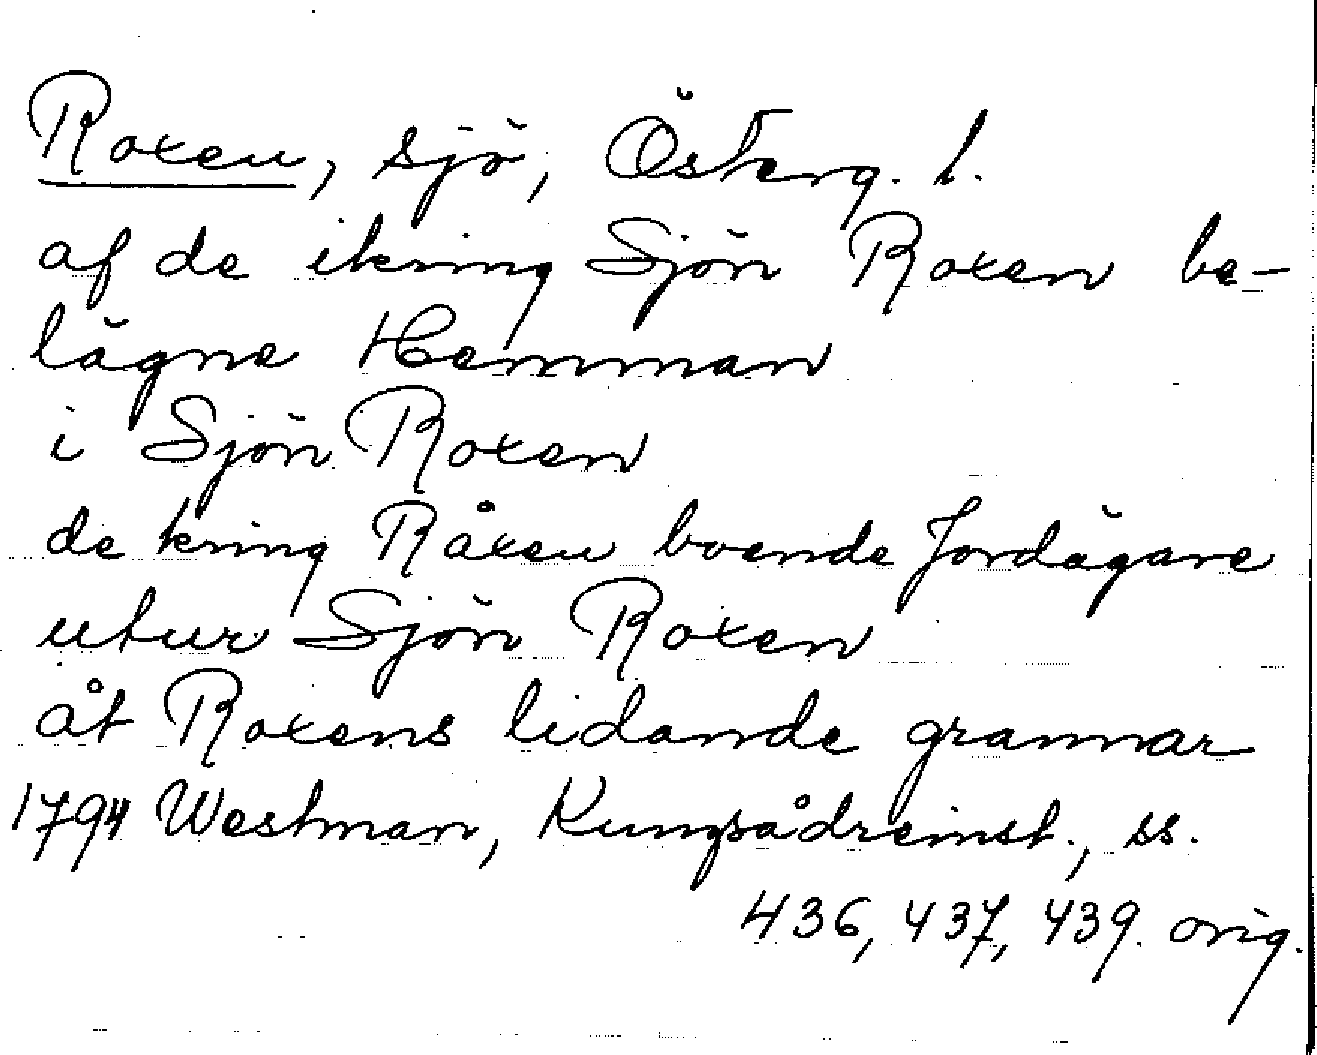 Roxen, sjö, Österg. l.
af de ikring Sjön Roxen be-
lägne Hemman
i Sjön Roxen
de kring Råxen boende Jordägare
utur Sjön Roxen
åt Roxens lidande grannar
1794 Westman, Kungsådreinst., ss.
436, 437, 439. orig.